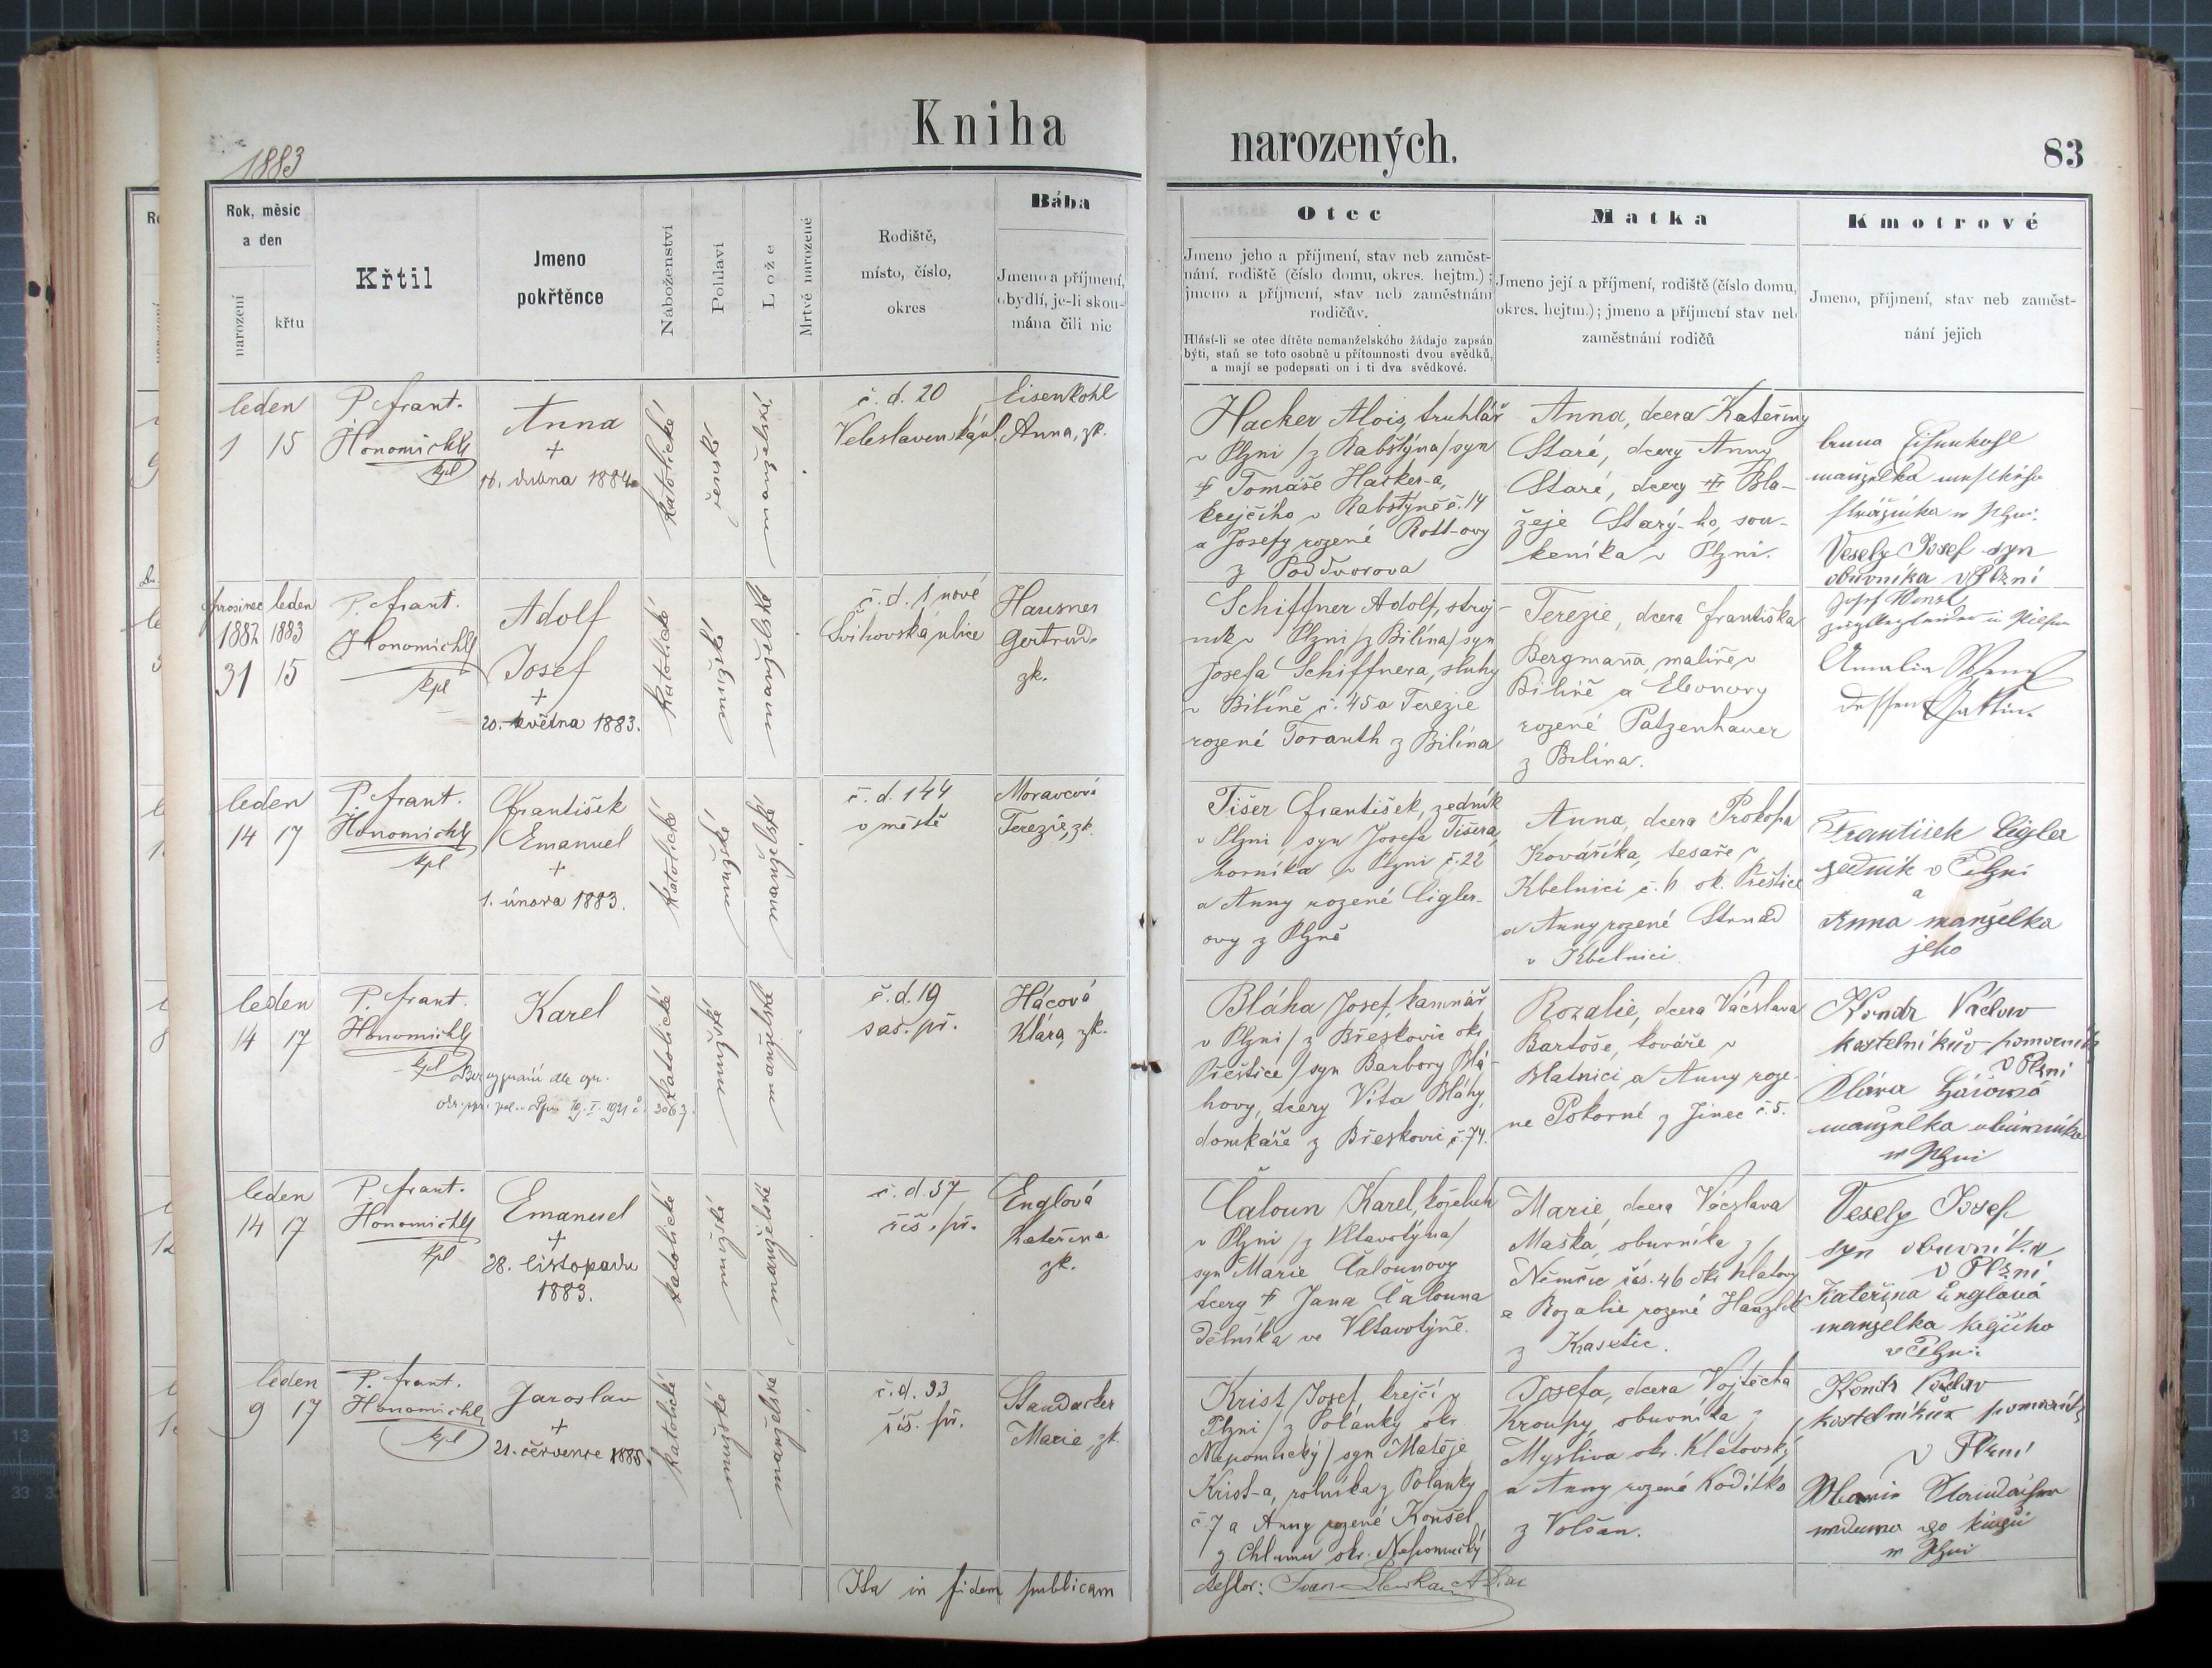 Kniha
narozených.
83
1883
Rok, měsíc
a den
narození
křtu
Křtil
Jmeno
pokřtěnce
Náboženství
Pohlaví
Lože
Mrtvě narozené
Rodiště,
místo, číslo,
okres
Bába
Jmeno a příjmení,
obydlí, je-li skou-
mána čili nic
Otec
Jmeno jeho a příjmení, stav neb zaměst-
nání, rodiště (číslo domu, okres. hejtm.);
jmeno a příjmení, stav neb zaměstnání
rodičův.
Hlásí-li se otec dítěte nemanželského žádaje zapsán
býti, staň se toto osobně u přítomnosti dvou svědků,
a mají se podepsati on i ti dva svědkové.
Matka
Jmeno její a příjmení, rodiště (číslo domu,
okres. hejtm.); jmeno a příjmení stav neb
zaměstnání rodičů
Kmotrové
Jmeno, příjmení, stav neb zaměst-
nání jejich
leden
1 15
P. Frant.
Honomichl
kpl
Anna
+
16. dubna 1884
katolické
ženské
manželské
č. d. 20
Veleslavin
Eisenkohl
Anna, zk.
Hacker Alois, truhlář
v Plzni /z Rabštýna/ syn
† Tomáše Hacker-a,
krejčího v Rabštýně č. 14
a Josefy rozené Rott-ovy
z Poddvorova
Anna, dcera Kateřiny
Staré, dcery Anny
Staré, dcery † Bla-
žeje Starý-ho, sou-
keníka v Plzni.
Anna Eisenkohl
manželka
strážníka w Plzni.
Veselý Josef syn
obuvníka v Plzni
prosinec leden
1882 1883
31 15
P. Frant.
Honomichl
kpl
Adolf
Josef
+
20. května 1883.
katolické
mužské
manželské
č. d. 1 nové
Švihovská ulice
Hausner
Gertrud.
zk.
Schiffner Adolf, stroj-
ník v Plzni /z Bilína/ syn
Josefa Schiffnera, sluhy
v Bilíně č. 45 a Terezie
rozené Toranth z Bilína
Terezie, dcera Františka
Bergmanna, malíře v
Bilíně a Eleonory
rozené Patzenhauer
z Bilína.
Josef Wenzl
in Pilsen
Amalia Wenzl
dessen Gattin.
leden
14 17
P. Frant.
Honomichl
kpl
František
Emanuel
+
1. února 1883.
katolické
mužské
manželské
č. d. 144
v městě
Moravcová
Terezie, zk.
Tišer František, zedník
v Plzni, syn Josefa Tišera,
horníka v Plzni č. 22
a Anny rozené Cigler-
ovy z Plzně
Anna, dcera Prokopa
Kováříka, tesaře v
Kbelnici č. 6 ok. Přeštice
a Anny rozené Strnad
v Kbelnici.
František Cigler
zedník v Plzni
a
Anna manželka
jeho
leden
14 17
P. Frant.
Honomichl
kpl
Karel
Bez vyznání dle
katolické
mužské
manželské
č. d. 19
sas. př.
Hácová
Klára, zk.
Bláha Josef, kamnář
v Plzni /z Břeskovic okr.
Přeštice/ syn Barbory Blá-
hovy, dcery Víta Bláhy,
domkáře z Břeskovic č. 74.
Rozalie, dcera Václava
Bartoše, kováře v
Blatnici, a Anny roze-
né Pokorné z Jinec č. 5.
Kondr Václav
kostelníkův pomocník
v Plzni
Klára Hácowá
manželka obuwníka
w Plzni
leden
14 17
P. Frant.
Honomichl
kpl
Emanuel
+
28. listopadu
1883.
katolické
mužské
manželské
č. d. 37
říš. př.
Englová
Kateřina
zk.
Čaloun Karel, koželuh
v Plzni /z Vltavotýna/
syn Marie Čalounovy
dcery † Jana Čalouna
dělníka ve Vltavotýně.
Marie, dcera Václava
Maška, obuvníka z
Němčic čís. 46 okr. Klatovy
a Rozalie rozené Hanzlík
z Krasetic.
Veselý Josef
syn obuvníka
v Plzni
Kateřina Englová
manželka krejčího
v Plzni
leden
9 17
P. Frant.
Honomichl
kpl
Jaroslav
+
21. července 1885
katolické
mužské
manželské
č. d. 93
říš. př.
Staudacher
Marie, zk.
Krist Josef, krejčí v
Plzni /z Polánky okr.
Nepomucký/ syn Matěje
Krist-a, rolníka z Polánky
č. 7 a Anny rozené Koušel
z Chlumu okr. Nepomucký
Josefa, dcera Vojtěcha
Kroupy, obuvníka z
Mysliva okr. Klatovský,
a Anny rozené Kodítko
z Volšan.
Kondr Václav
kostelníkův pomocník
v Plzni
Marie
wdowa po krejčí
w Plzni
Ita in fidem publicam
testor: Joan